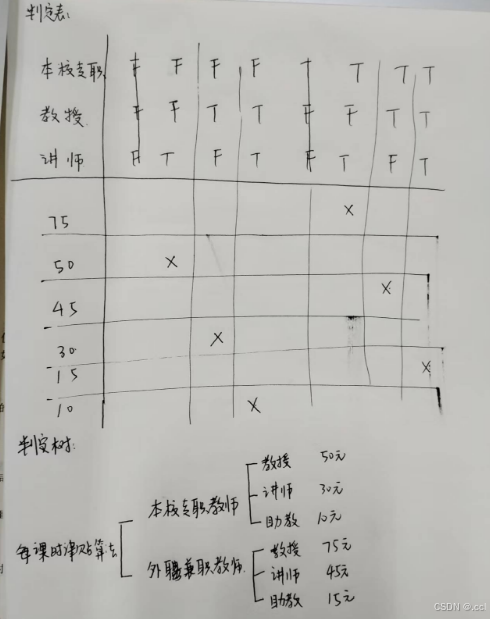 判定表:
本校专职 F F F F T T T T
教授 F F T T F F T T
讲师 F T F T F T F T
75 X
50 X
45 X
30 X
15 X
10 X
判定树:
每课时津贴算法
本校专职教师
教授 50元
讲师 30元
助教 10元
外聘兼职教师
教授 75元
讲师 45元
助教 15元
CSDN @.ccl